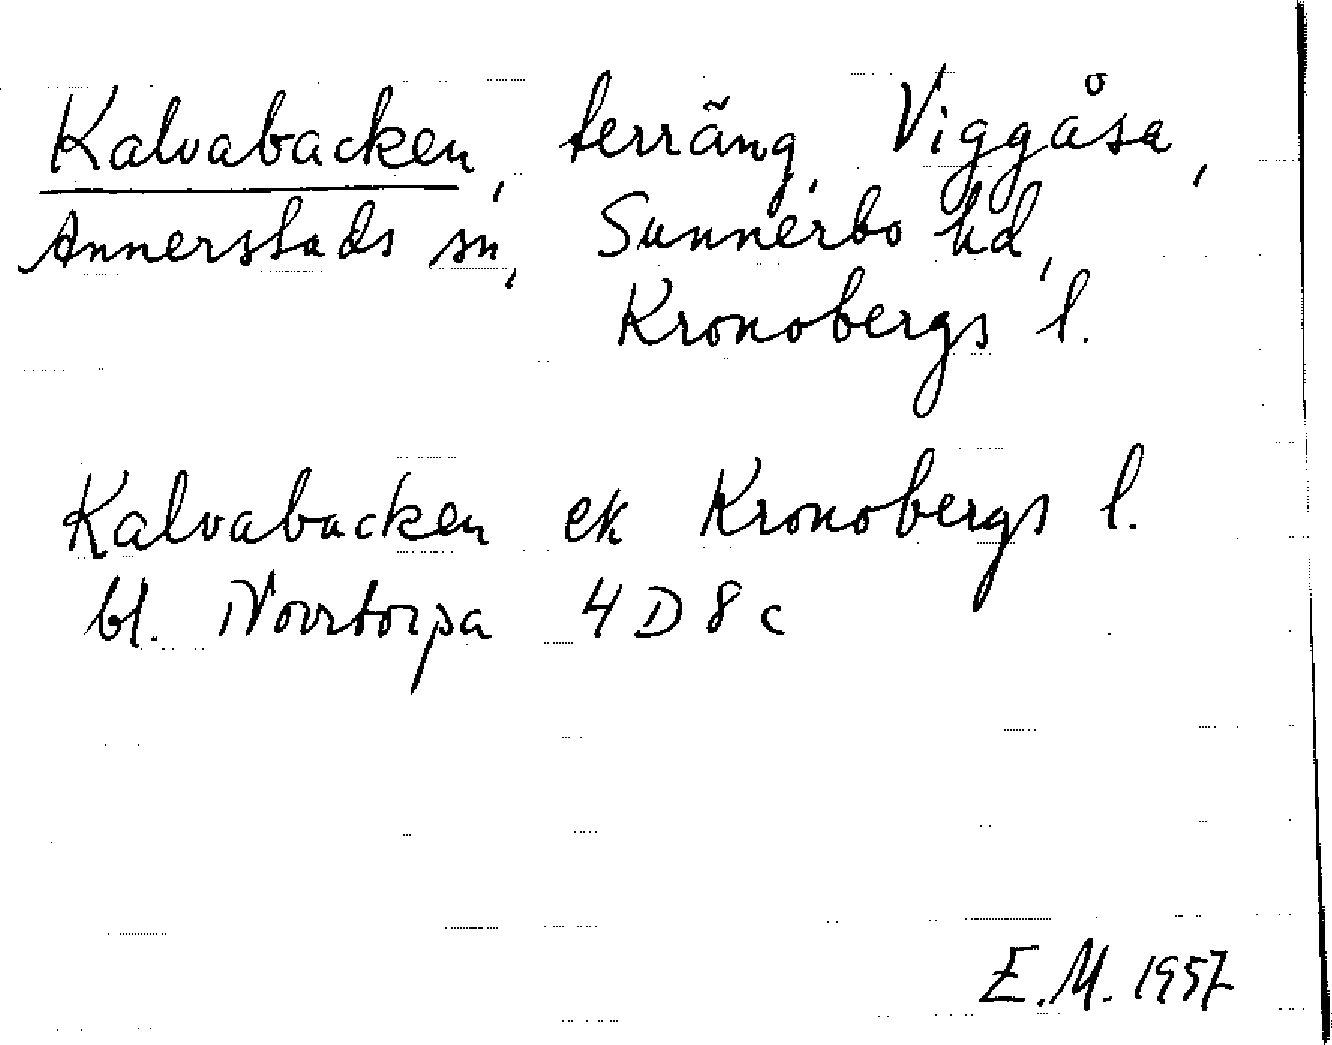 Kalvabacken, terräng, Viggåsa,
Annerstads sn, Sunnerbo hd,
Kronobergs l.
Kalvabacken ek Kronobergs l.
bl. Norrtorpa 4 D 8 c
E.M. 1957